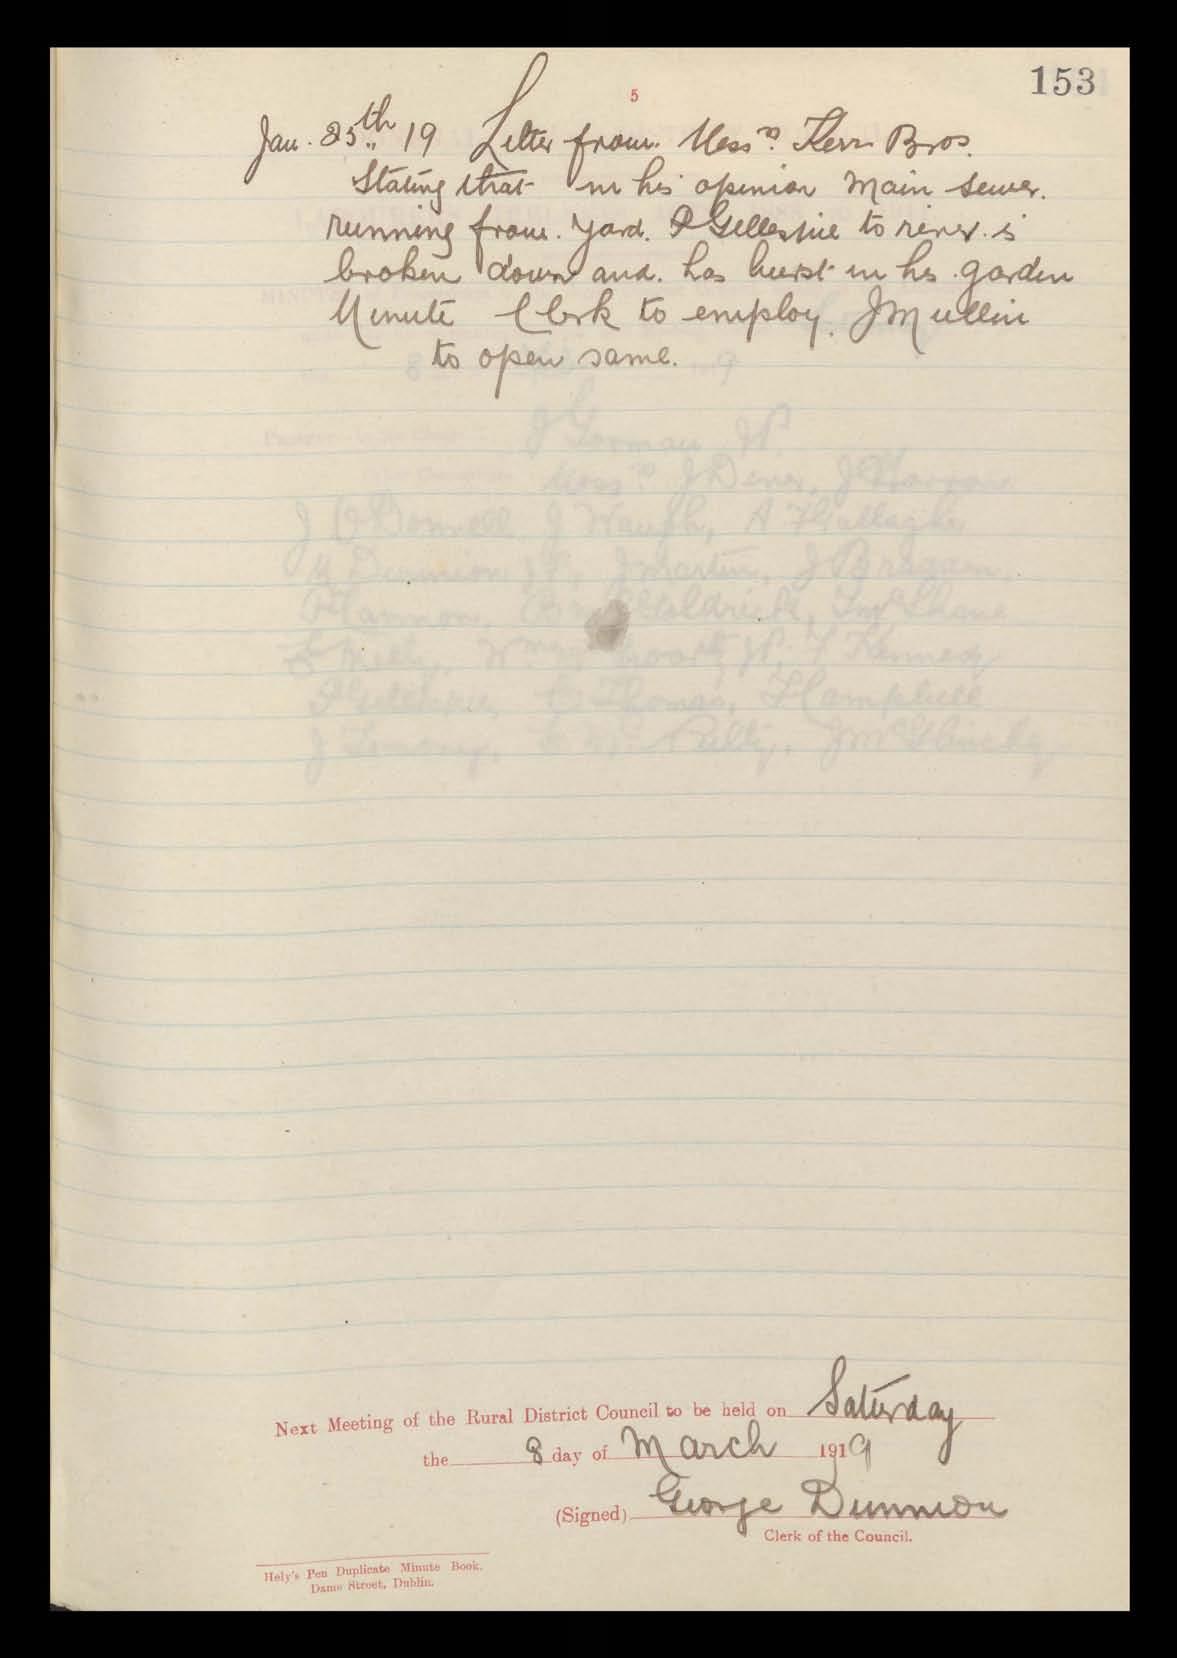 153
5
Jan. 25th 19 Letter from Messrs Kerr Bros.
Stating that in his opinion Main Sewer.
running from. yard. P Gillespie to river is
broken down and. has burst in his garden
Minute Clerk to employ J Mullin
to open same.
Next Meeting of the Rural District Council to be held on Saturday
the 8 day of March 1919
(Signed) George Dunnion
Clerk of the Council.
Hely's Pen Duplicate Minute Book.
Dame Street, Dublin.